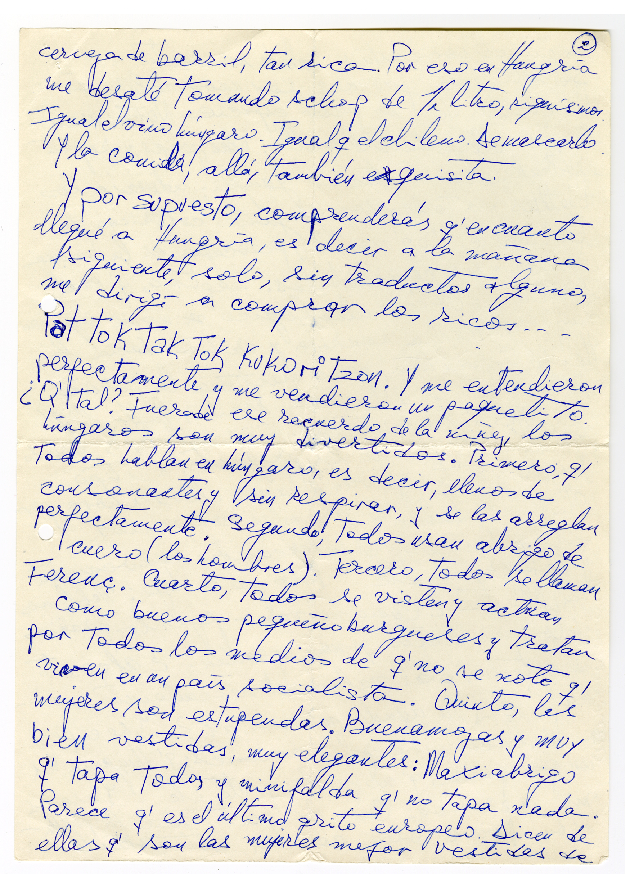 2
cerveza de barril, tan rica. Por eso en Hungría
me desaté tomando schop de 1/2 litro, riquísimos.
Igual el vino húngaro. Igual q' el chileno. Demarcarlo.
Y la comida, allá, también exquisita.
Y por supuesto, comprenderás q' en cuanto
llegué a Hungría, es decir a la mañana
siguiente, solo, sin traductor alguno,
me dirigí a comprar los ricos....
Pat tok Tak Tok Kukoritzon. Y me entendieron
perfectamente y me vendieron un paquetito.
¿Q' tal? Fuera de ese recuerdo de la niñez, los
húngaros son muy divertidos. Primero, q'
Todos hablan en húngaro, es decir, llenos de
consonantes y sin respirar, y se las arreglan
perfectamente. Segundo, Todos usan abrigo de
cuero (los hombres). Tercero, Todos se llaman
Ferenc. Cuarto, Todos se visten y actúan
como buenos pequeñoburgueses y tratan
por Todos los medios de q' no se note q'
viven en un país socialista. Quinto, las
mujeres son estupendas. Buenamozas y muy
bien vestidas, muy elegantes: Maxiabrigo
q' tapa Todos y minifalda q' no tapa nada.
Parece q' es el último grito europeo. Dicen de
ellas q' son las mujeres mejor vestidas de